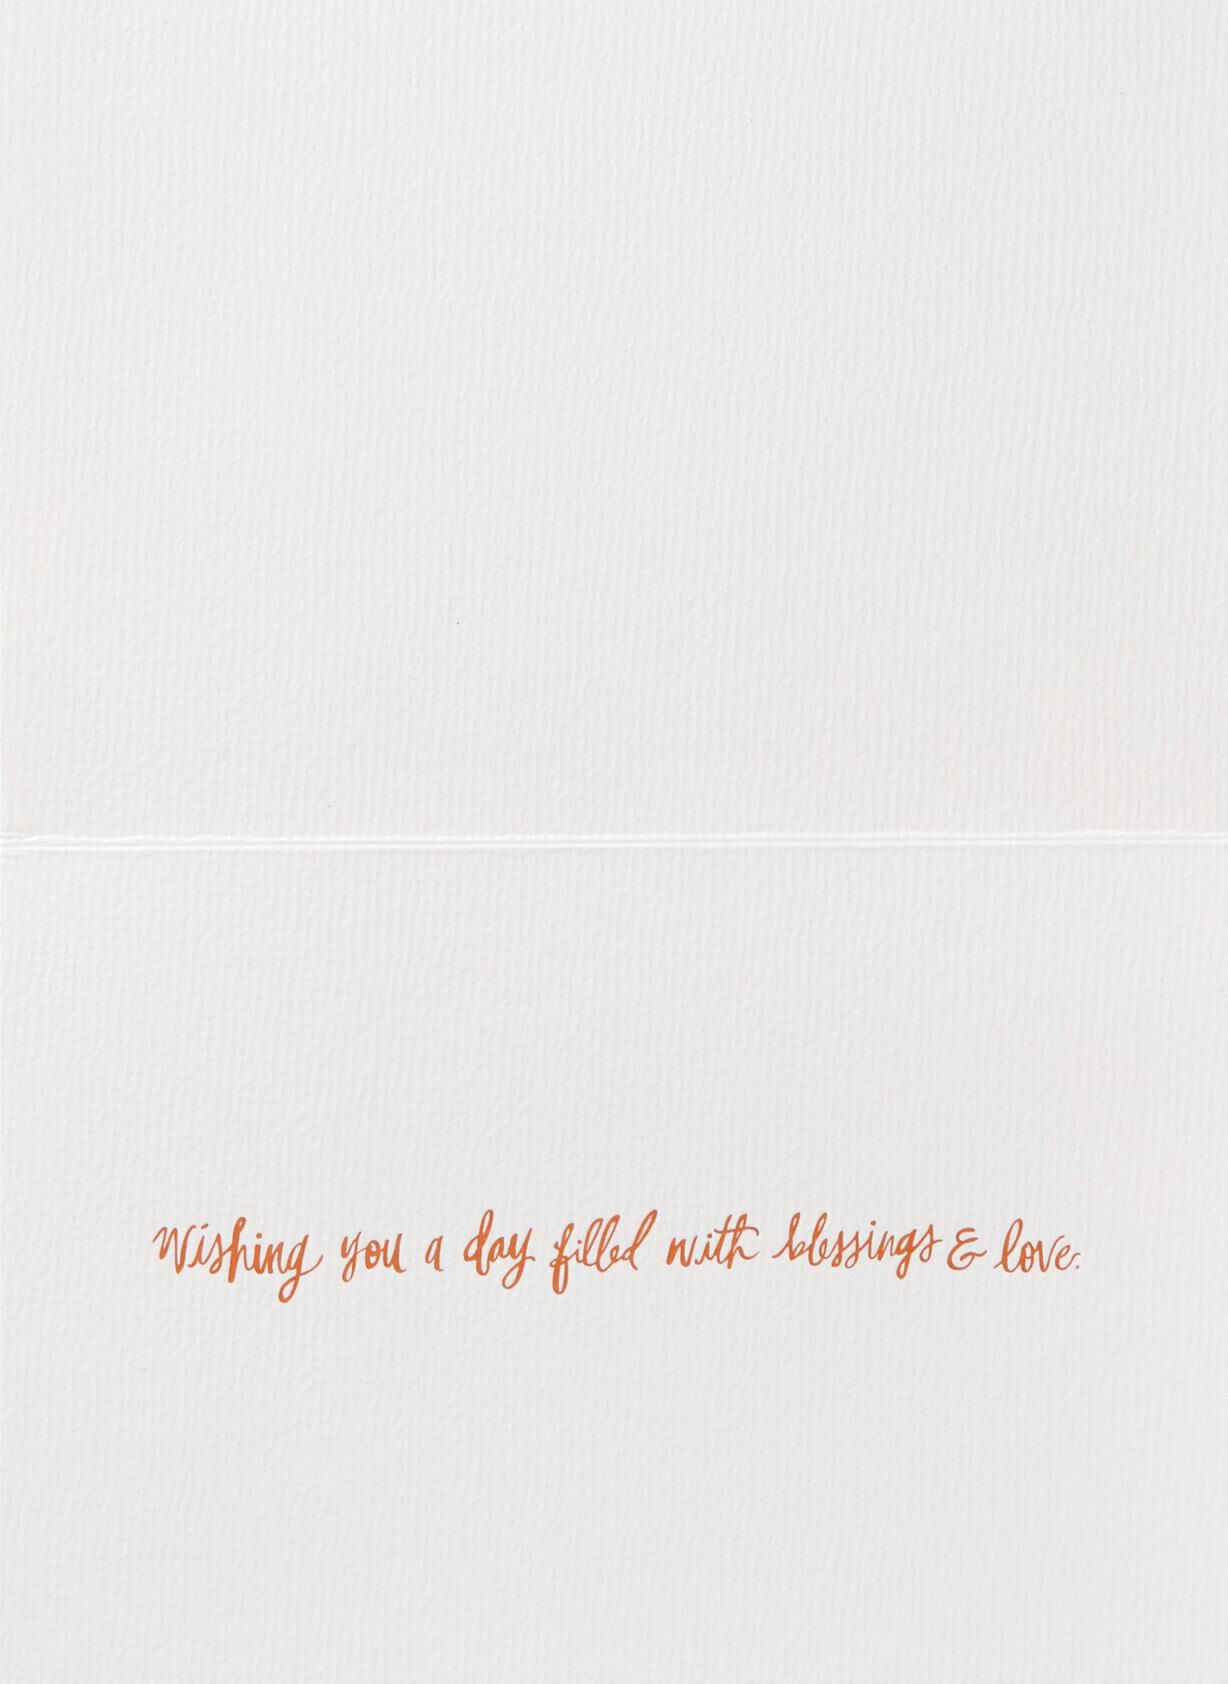 Wishing you a day filled with blessings & love.